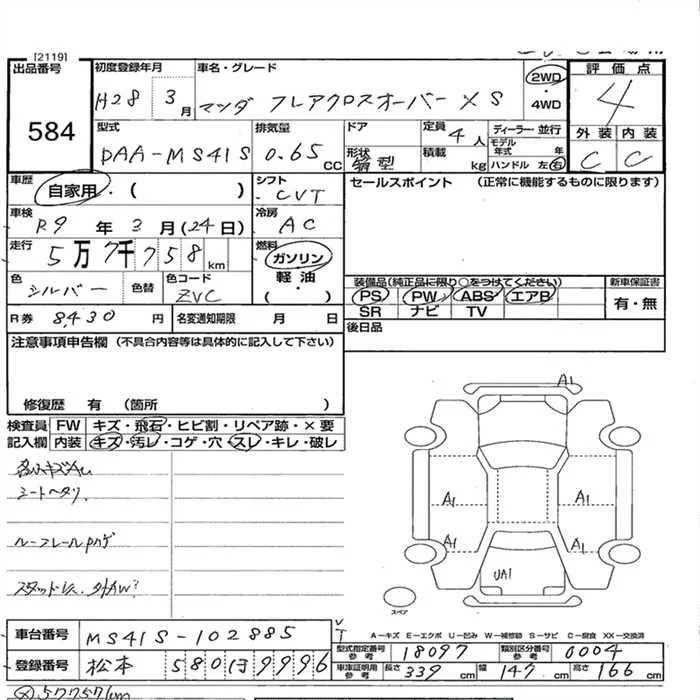 [2119]
出品番号
584
初度登録年月
H28 3月
車名・グレード
マツダ フレアクロスオーバー XS
2WD
・
4WD
評価点
4
外装 内装
C C
型式
DAA-MS41S
排気量
0.65 CC
ドア
形状
箱型
定員
4人
積載
kg
ディーラー・並行
モデル年式 年
ハンドル 左・右
車歴
自家用・( )
シフト
CVT
セールスポイント (正常に機能するものに限ります)
車検
R9年 3月(24日)
冷房
AC
走行
5万7千758km
燃料
ガソリン
軽・油
( )
色
シルバー
色替
色コード
ZVC
装備品(純正品に限り○をつけてください)
PS PW ABS エアB
SR ナビ TV
新車保証書
有・無
R券 8,430円
名変通知期限 月 日
後日品
注意事項申告欄 (不具合内容等は具体的に記入して下さい)
修復歴 有 (箇所 )
検査員
記入欄
FW キズ・飛石・ヒビ割・リペア跡・×要
内装 キズ・汚レ・コゲ・穴・スレ・キレ・破レ
シートヘタリ
ルーフレールハゲ
A1
A1
A1
A1
A1
UA1
スペア
A−キズ E−エクボ U−凹み W−補修跡 S−サビ C−腐食 XX−交換済
車台番号 MS41S-102885
登録番号 松本 580 ほ 9996
型式指定番号 参考 18097
類別区分番号 参考 0004
車庫証明用 参考 長さ 339cm 幅 147cm 高さ 166cm
57757km